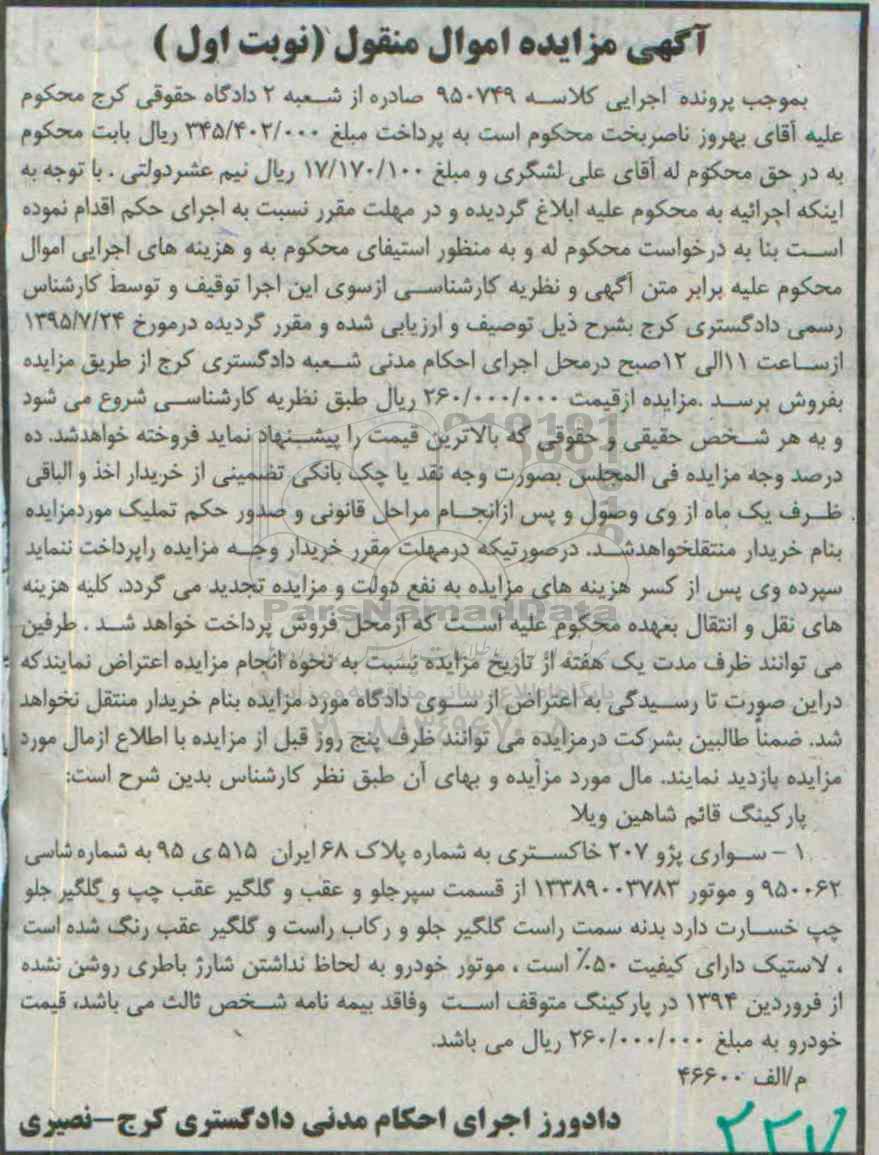 آگهی مزایده اموال منقول (نوبت اول )
بموجب پرونده اجرایی کلاسه ۹۵۰۷۴۹ صادره از شعبه ۲ دادگاه حقوقی کرج محکوم
علیه آقای بهروز ناصربخت محکوم است به پرداخت مبلغ ۳۴۵/۴۰۲/۰۰۰ ریال بابت محکوم
به در حق محکوم له آقای علی لشگری و مبلغ ۱۷/۱۷۰/۱۰۰ ریال نیم عشردولتی . با توجه به
اینکه اجرائیه به محکوم علیه ابلاغ گردیده و در مهلت مقرر نسبت به اجرای حکم اقدام نموده
است بنا به درخواست محکوم له و به منظور استیفای محکوم به و هزینه های اجرایی اموال
محکوم علیه برابر متن آگهی و نظریه کارشناسی ازسوی این اجرا توقیف و توسط کارشناس
رسمی دادگستری کرج بشرح ذیل توصیف و ارزیابی شده و مقرر گردیده درمورخ ۱۳۹۵/۷/۲۴
ازساعت ۱۱الی ۱۲صبح درمحل اجرای احکام مدنی شعبه دادگستری کرج از طریق مزایده
بفروش برسد .مزایده ازقیمت ۲۶۰/۰۰۰/۰۰۰ ریال طبق نظریه کارشناسی شروع می شود
و به هر شخص حقیقی و حقوقی که بالاترین قیمت را پیشنهاد نماید فروخته خواهدشد. ده
درصد وجه مزایده فی المجلس بصورت وجه نقد یا چک بانکی تضمینی از خریدار اخذ و الباقی
ظرف یک ماه از وی وصول و پس ازانجام مراحل قانونی و صدور حکم تملیک موردمزایده
بنام خریدار منتقلخواهدشد. درصورتیکه درمهلت مقرر خریدار وجه مزایده راپرداخت ننماید
سپرده وی پس از کسر هزینه های مزایده به نفع دولت و مزایده تجدید می گردد. کلیه هزینه
های نقل و انتقال بعهده محکوم علیه است که ازمحل فروش پرداخت خواهد شد . طرفین
می توانند ظرف مدت یک هفته از تاریخ مزایده نسبت به نحوه انجام مزایده اعتراض نمایندکه
دراین صورت تا رسیدگی به اعتراض از سوی دادگاه مورد مزایده بنام خریدار منتقل نخواهد
شد. ضمناً طالبین بشرکت درمزایده می توانند ظرف پنج روز قبل از مزایده با اطلاع ازمال مورد
مزایده بازدید نمایند. مال مورد مزایده و بهای آن طبق نظر کارشناس بدین شرح است:
پارکینگ قائم شاهین ویلا
۱ - سواری پژو ۲۰۷ خاکستری به شماره پلاک ۶۸ ایران ۵۱۵ ی ۹۵ به شماره شاسی
۹۵۰۰۶۲ و موتور ۱۳۳۸۹۰۰۳۷۸۳ از قسمت سپرجلو و عقب و گلگیر عقب چپ و گلگیر جلو
چپ خسارت دارد بدنه سمت راست گلگیر جلو و رکاب راست و گلگیر عقب رنگ شده است
، لاستیک دارای کیفیت ۵۰٪ است ، موتور خودرو به لحاظ نداشتن شارژ باطری روشن نشده
از فروردین ۱۳۹۴ در پارکینگ متوقف است وفاقد بیمه نامه شخص ثالث می باشد، قیمت
خودرو به مبلغ ۲۶۰/۰۰۰/۰۰۰ ریال می باشد.
م/الف ۴۶۶۰۰
دادورز اجرای احکام مدنی دادگستری کرج-نصیری
۲۲۷
ParsNamadData